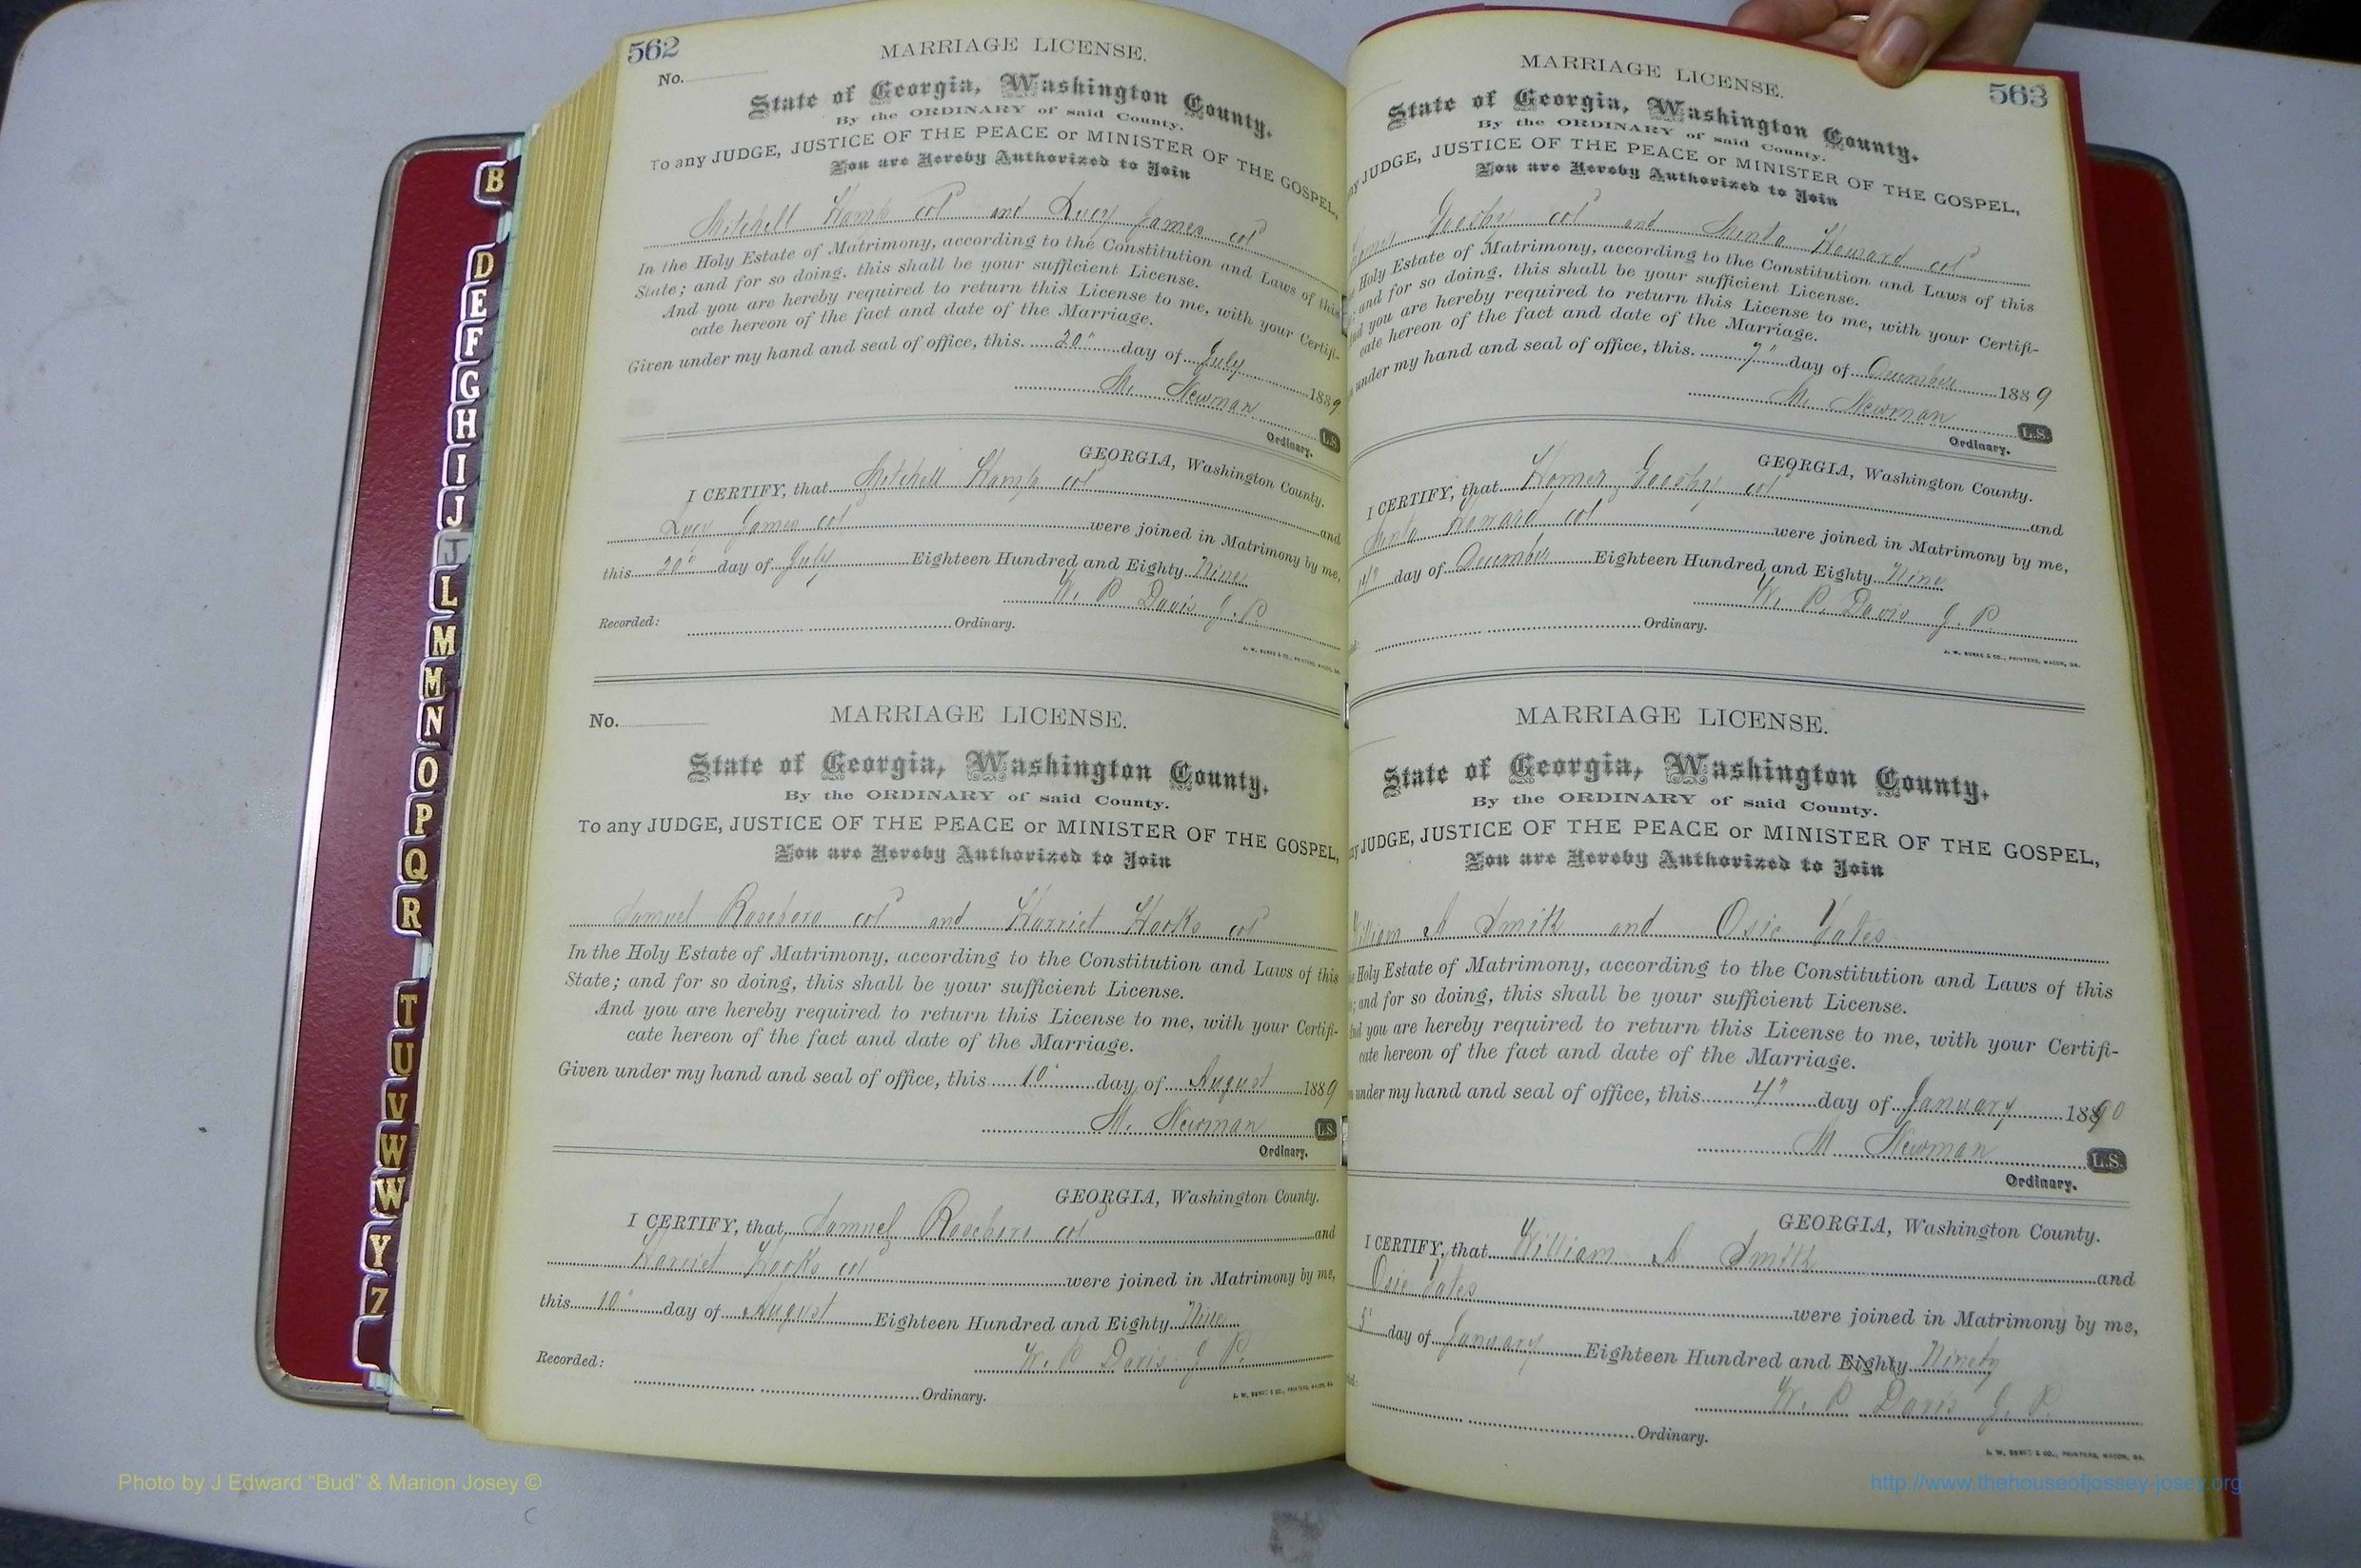 562
No.
MARRIAGE LICENSE.
State of Georgia, Washington County.
By the ORDINARY of said County.
To any JUDGE, JUSTICE OF THE PEACE or MINISTER OF THE GOSPEL,
You are Hereby Authorized to Join
Mitchell Hamp col and Lucy James col
In the Holy Estate of Matrimony, according to the Constitution and Laws of this
State; and for so doing, this shall be your sufficient License.
And you are hereby required to return this License to me, with your Certifi-
cate hereon of the fact and date of the Marriage.
Given under my hand and seal of office, this 20" day of July 1889
M. Newman L.S.
Ordinary.
GEORGIA, Washington County.
I CERTIFY, that Mitchell Hamp col and
Lucy James col were joined in Matrimony by me,
this 20" day of July Eighteen Hundred and Eighty Nine
W. P. Davis J. P.
Recorded: Ordinary.
J. W. BURKE & CO., PRINTERS, MACON, GA.
No.
MARRIAGE LICENSE.
State of Georgia, Washington County.
By the ORDINARY of said County.
To any JUDGE, JUSTICE OF THE PEACE or MINISTER OF THE GOSPEL,
You are Hereby Authorized to Join
Samuel Rosebero col and Harriet Hooks col
In the Holy Estate of Matrimony, according to the Constitution and Laws of this
State; and for so doing, this shall be your sufficient License.
And you are hereby required to return this License to me, with your Certifi-
cate hereon of the fact and date of the Marriage.
Given under my hand and seal of office, this 10" day of August 1889
M. Newman L.S.
Ordinary.
GEORGIA, Washington County.
I CERTIFY, that Samuel Rosebero col and
Harriet Hooks col were joined in Matrimony by me,
this 10" day of August Eighteen Hundred and Eighty Nine
W. P. Davis J. P.
Recorded: Ordinary.
J. W. BURKE & CO., PRINTERS, MACON, GA.
563
MARRIAGE LICENSE.
State of Georgia, Washington County.
By the ORDINARY of said County.
ny JUDGE, JUSTICE OF THE PEACE or MINISTER OF THE GOSPEL,
You are Hereby Authorized to Join
Homer Goosby col and Howard col
Holy Estate of Matrimony, according to the Constitution and Laws of this
and for so doing, this shall be your sufficient License.
nd you are hereby required to return this License to me, with your Certifi-
cate hereon of the fact and date of the Marriage.
under my hand and seal of office, this 7" day of December 1889
M. Newman L.S.
Ordinary.
GEORGIA, Washington County.
I CERTIFY, that Homer Goosby col and
Howard col were joined in Matrimony by me,
day of December Eighteen Hundred and Eighty Nine
W. P. Davis J. P.
Ordinary.
J. W. BURKE & CO., PRINTERS, MACON, GA.
MARRIAGE LICENSE.
State of Georgia, Washington County.
By the ORDINARY of said County.
ny JUDGE, JUSTICE OF THE PEACE or MINISTER OF THE GOSPEL,
You are Hereby Authorized to Join
William A Smith and Osie Yates
Holy Estate of Matrimony, according to the Constitution and Laws of this
; and for so doing, this shall be your sufficient License.
nd you are hereby required to return this License to me, with your Certifi-
cate hereon of the fact and date of the Marriage.
under my hand and seal of office, this 4" day of January 1890
M. Newman L.S.
Ordinary.
GEORGIA, Washington County.
I CERTIFY, that William A Smith and
Osie Yates were joined in Matrimony by me,
5" day of January Eighteen Hundred and Eighty Ninety
W. P. Davis J. P.
Ordinary.
J. W. BURKE & CO., PRINTERS, MACON, GA.
B
D
E
F
G
H
I
J
J
L
M
M
N
O
P
Q
R
T
U
V
W
W
Y
Z
Photo by J Edward “Bud” & Marion Josey ©
http://www.thehouseofjossey-josey.org